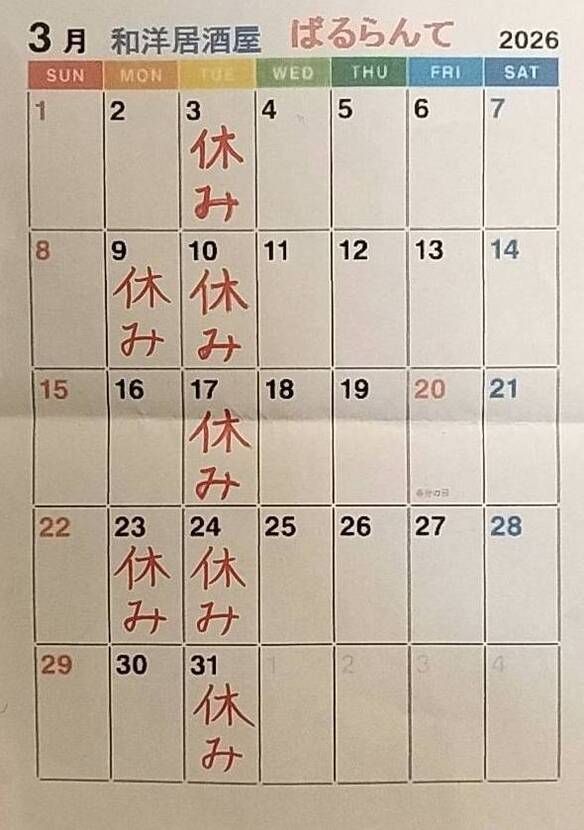 3月 和洋居酒屋 ぱるらんて 2026
SUN MON TUE WED THU FRI SAT
1 2 3 4 5 6 7
休み
8 9 10 11 12 13 14
休み 休み
15 16 17 18 19 20 21
休み
春分の日
22 23 24 25 26 27 28
休み 休み
29 30 31 1 2 3 4
休み